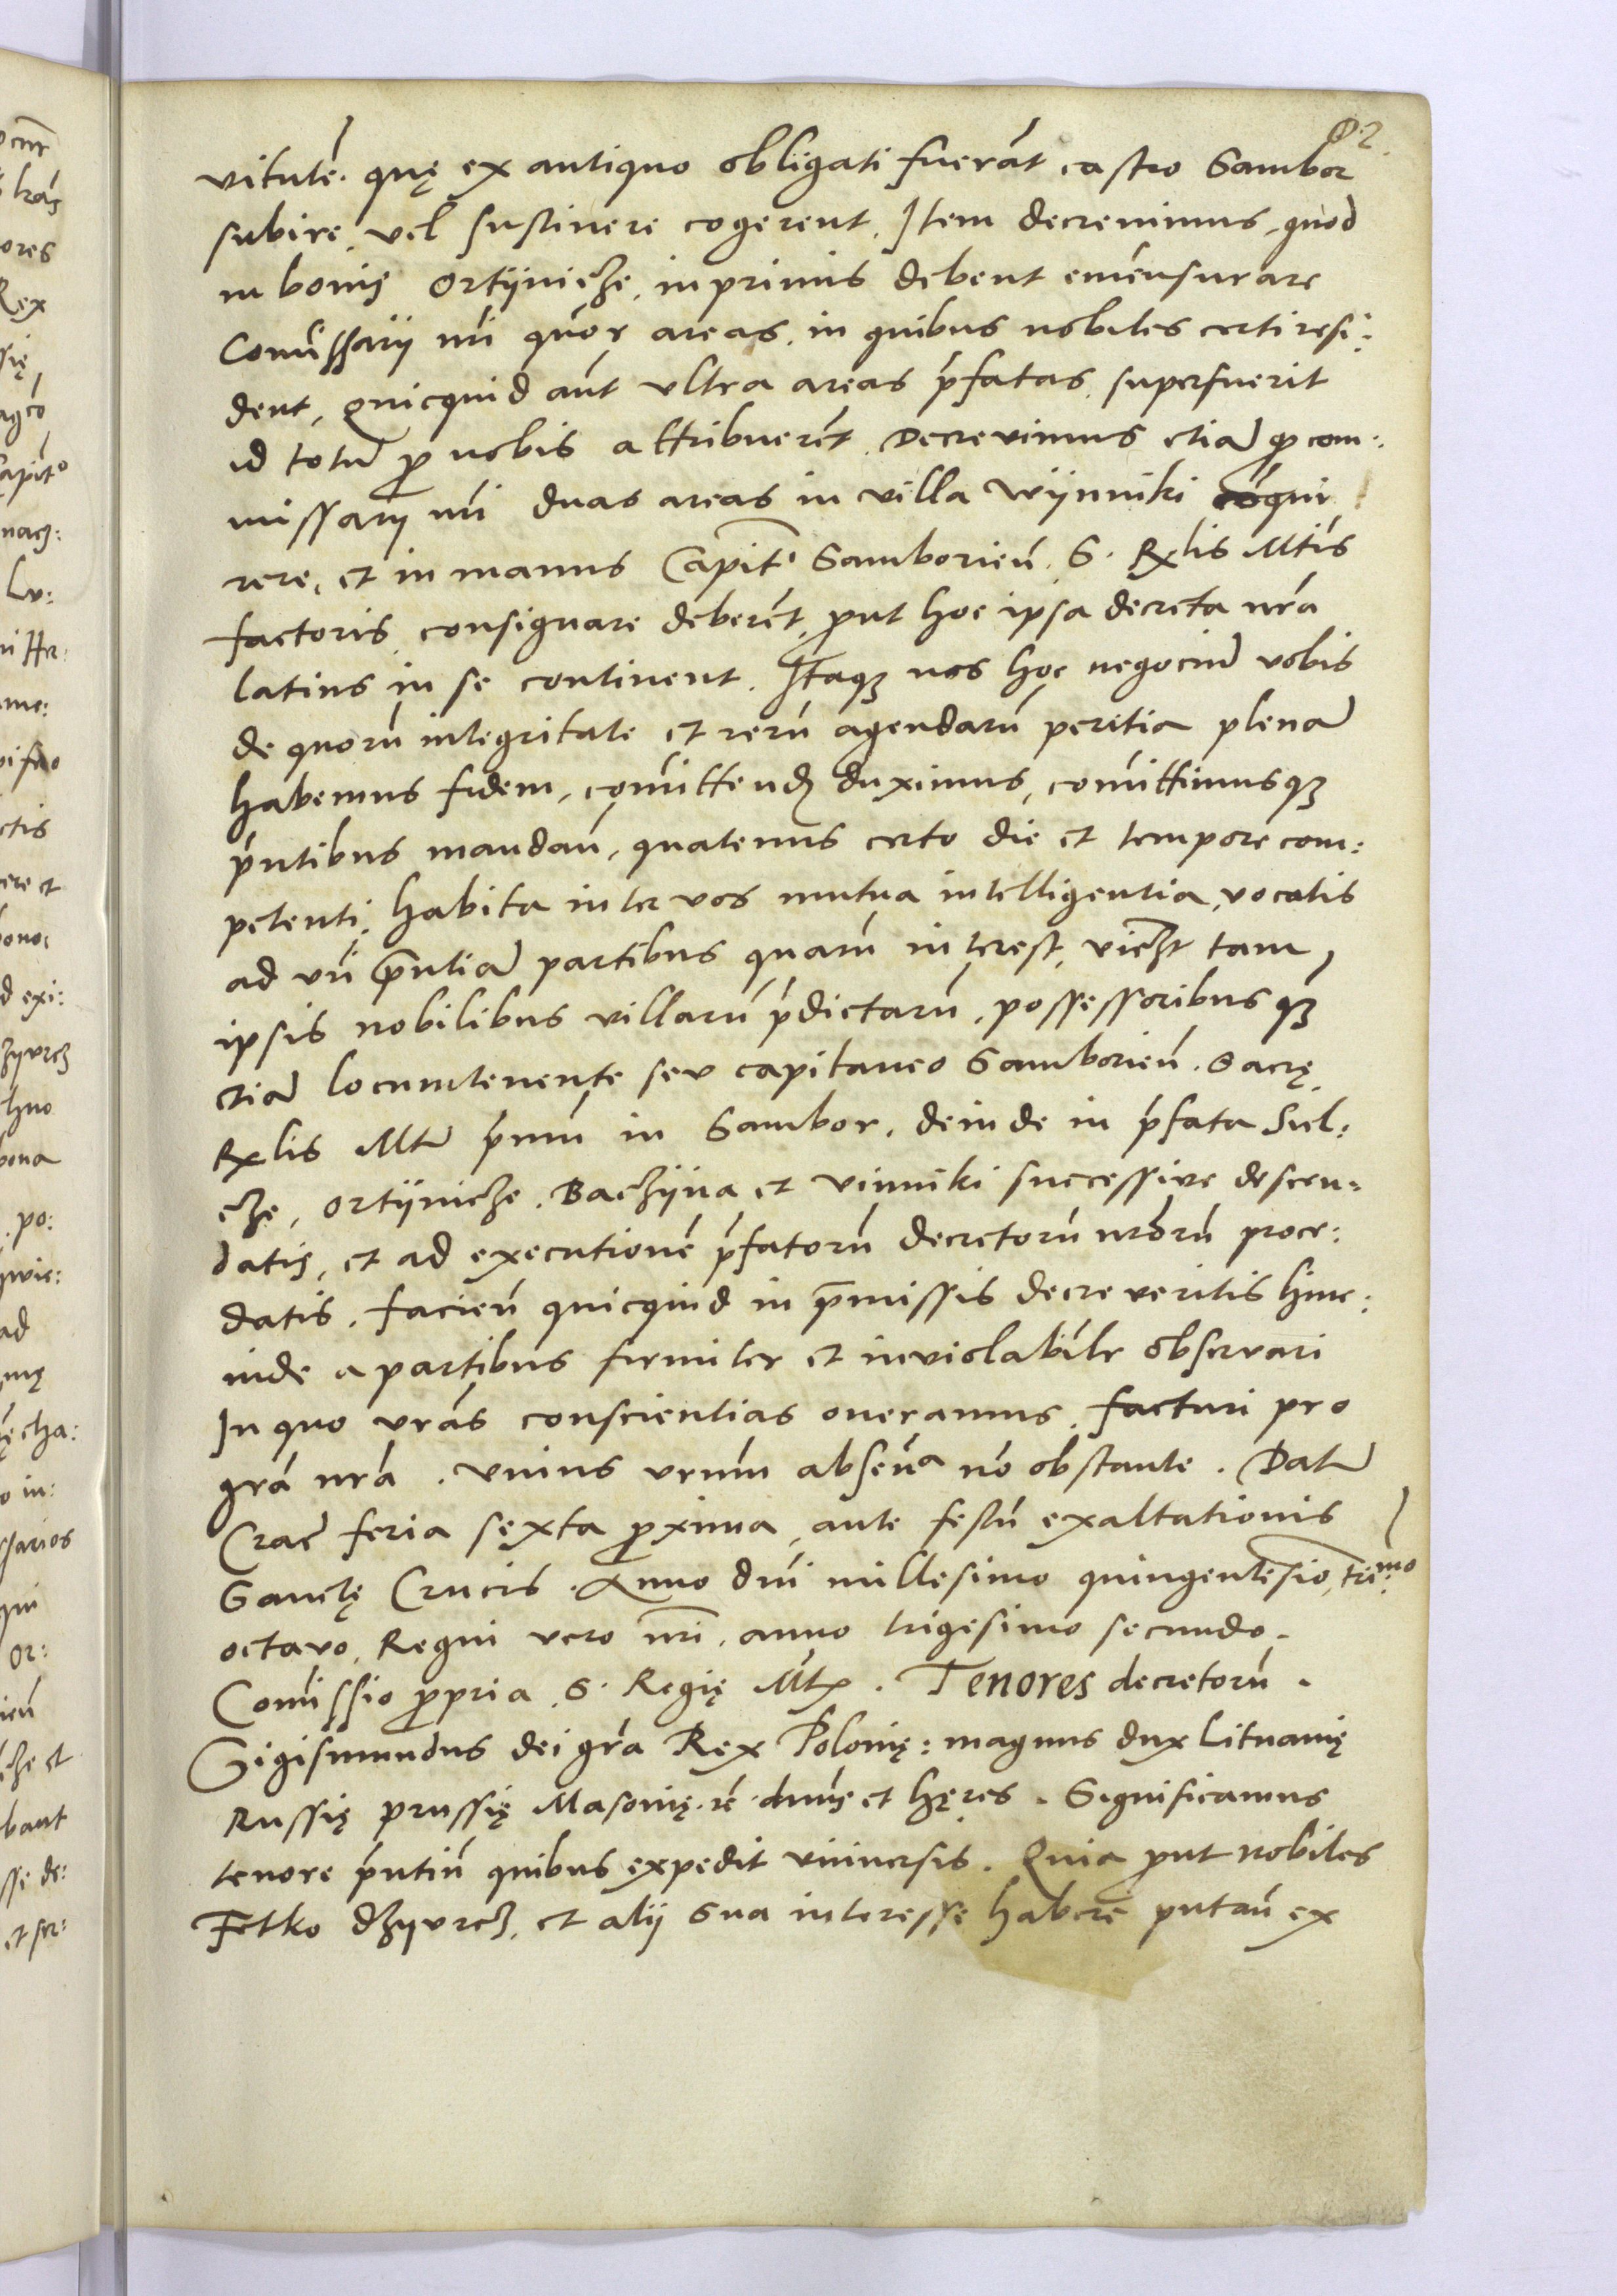 vitutē. quę ex antiquo obligati fuerāt castro Sambor
subire, vel sustinere cogerent. Item decrevimus, quod
in bonis Ortÿnicze, inprimis debent emensurare
Comissarÿ nri quor areas, in quibus nobiles certi resi:
dent, Quicquid aut ultra areas pfatas, superfuerit
id totū p nobis attribuerēt. Decrevimus etiā q com:
missarÿ nri duas areas in villa Wÿnniki
rere, et in manus Capitˢ Samborieñ. S. Rxlis Mtis
factoris, consignare deberēt, put hoc ipsa decreta nra
latius in se continent. Itaqȝ nos hoc negociū vobis
de quorū integritate et rerū agendarū peritia plenā
habemus fidem, comittendȝ duximus, comittimusqȝ
pntibus mandañ, quatenus certo die et tempore com:
petenti, habita inter vos mutua intelligentia, vocatis
ad vri pntiā partibus quarū interest, viczt tam
ipsis nobilibus villarū pdictarū, possessoribus qȝ
etiā locumtenente seu capitaneo Samborieñ. Sacrę
Rxlis Mtꝭ pmū in Sambor, deinde in pfata Siel:
cze, Ortÿnicze, Baczÿna et Vinniki successive descen:
datis, et ad executionē pfatorū decretorū nrorū proce:
datis, facieñ quicquid in pmissis decreveritis hinc:
inde a partibus firmiter et inviolabilr observari
In quo vras conscientias oneramus, facturi pro
gra nra. Unius vrum abseñᵃ nō obstante. Datū
Crać feria sexta pxima, ante festū exaltationis
Sanctę Crucis. Anno dni millesimo quingentesio, triᵐᵒ
octavo, Regni vero nri, anno trigesimo secundo.
Comissio ppria S. Regię Mtꝭ. Tenores decretorū.
Sigismundus dei gra Rex Polonię: magnus dux Lituanię
Russię prussię Masovię. rē. dnus et hęres. Significamus
tenore pntiū quibus expedit universis. Quia put nobiles
Fetko dzyurcz, et alÿ sua interesse habere putañ ex